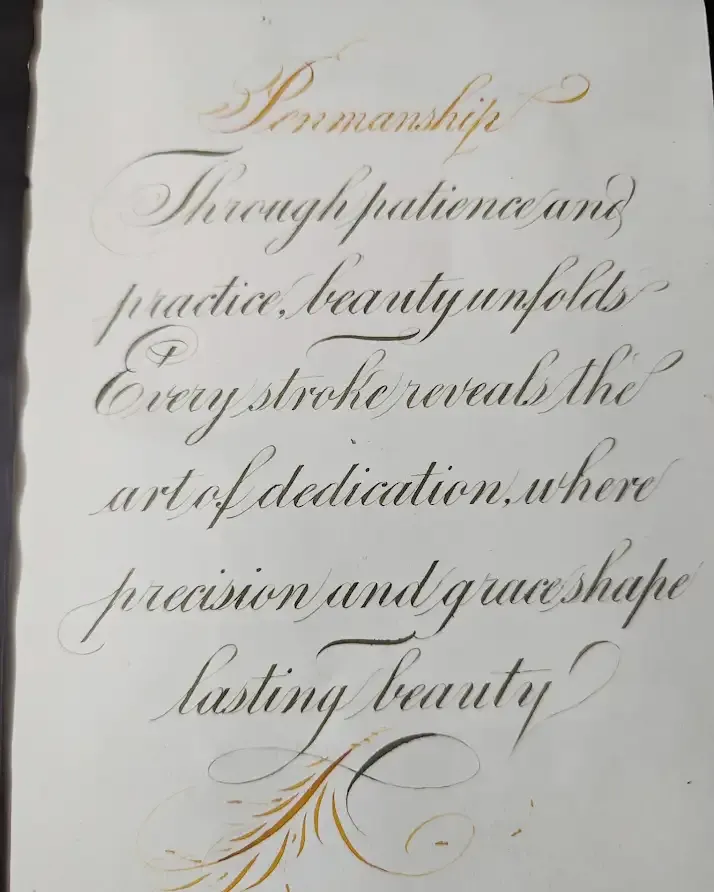 Penmanship
Through patience and
practice, beauty unfolds
Every stroke reveals the
art of dedication, where
precision and grace shape
lasting beauty